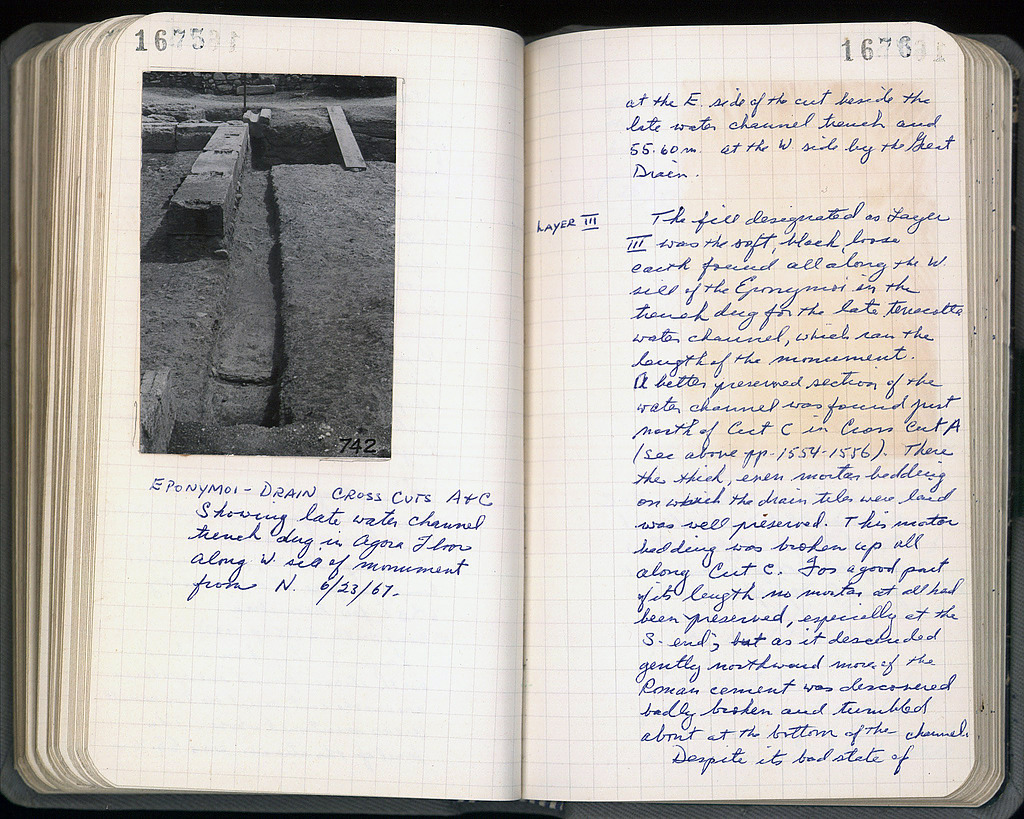 1675
742
EPONYMOI - DRAIN CROSS CUTS A+C
Showing late water channel
trench dug in Agora Floor
along W. sill of monument
from N. 6/23/67.
1676
at the E. side of the cut beside the
late water channel trench and
55.60 m. at the W side by the Great
Drain.
LAYER III
The fill designated as Layer
III was the soft black loose
earth found all along the W.
sill of the Eponymoi in the
trench dug for the late terracotta
water channel, which ran the
length of the monument.
A better preserved section of the
water channel was found just
north of Cut C in Cross Cut A
(see above pp. 1554-1556). There
the thick, even mortar bedding
on which the drain tiles were laid
was well preserved. This mortar
bedding was broken up all
along Cut C. For a good part
of its length no mortar at all had
been preserved, especially at the
S. end; but as it descended
gently northward more of the
Roman cement was discovered
badly broken and tumbled
about at the bottom of the channel.
Despite its bad state of